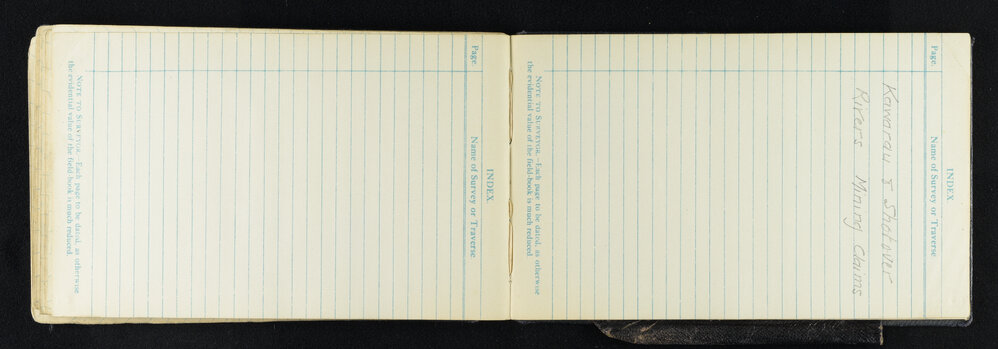 INDEX.
Page. Name of Survey or Traverse
Kawarau & Shotover
Rivers Mining Claims
NOTE TO SURVEYOR.—Each page to be dated, as otherwise
the evidential value of the field-book is much reduced.
INDEX.
Page. Name of Survey or Traverse
NOTE TO SURVEYOR.—Each page to be dated, as otherwise
the evidential value of the field-book is much reduced.